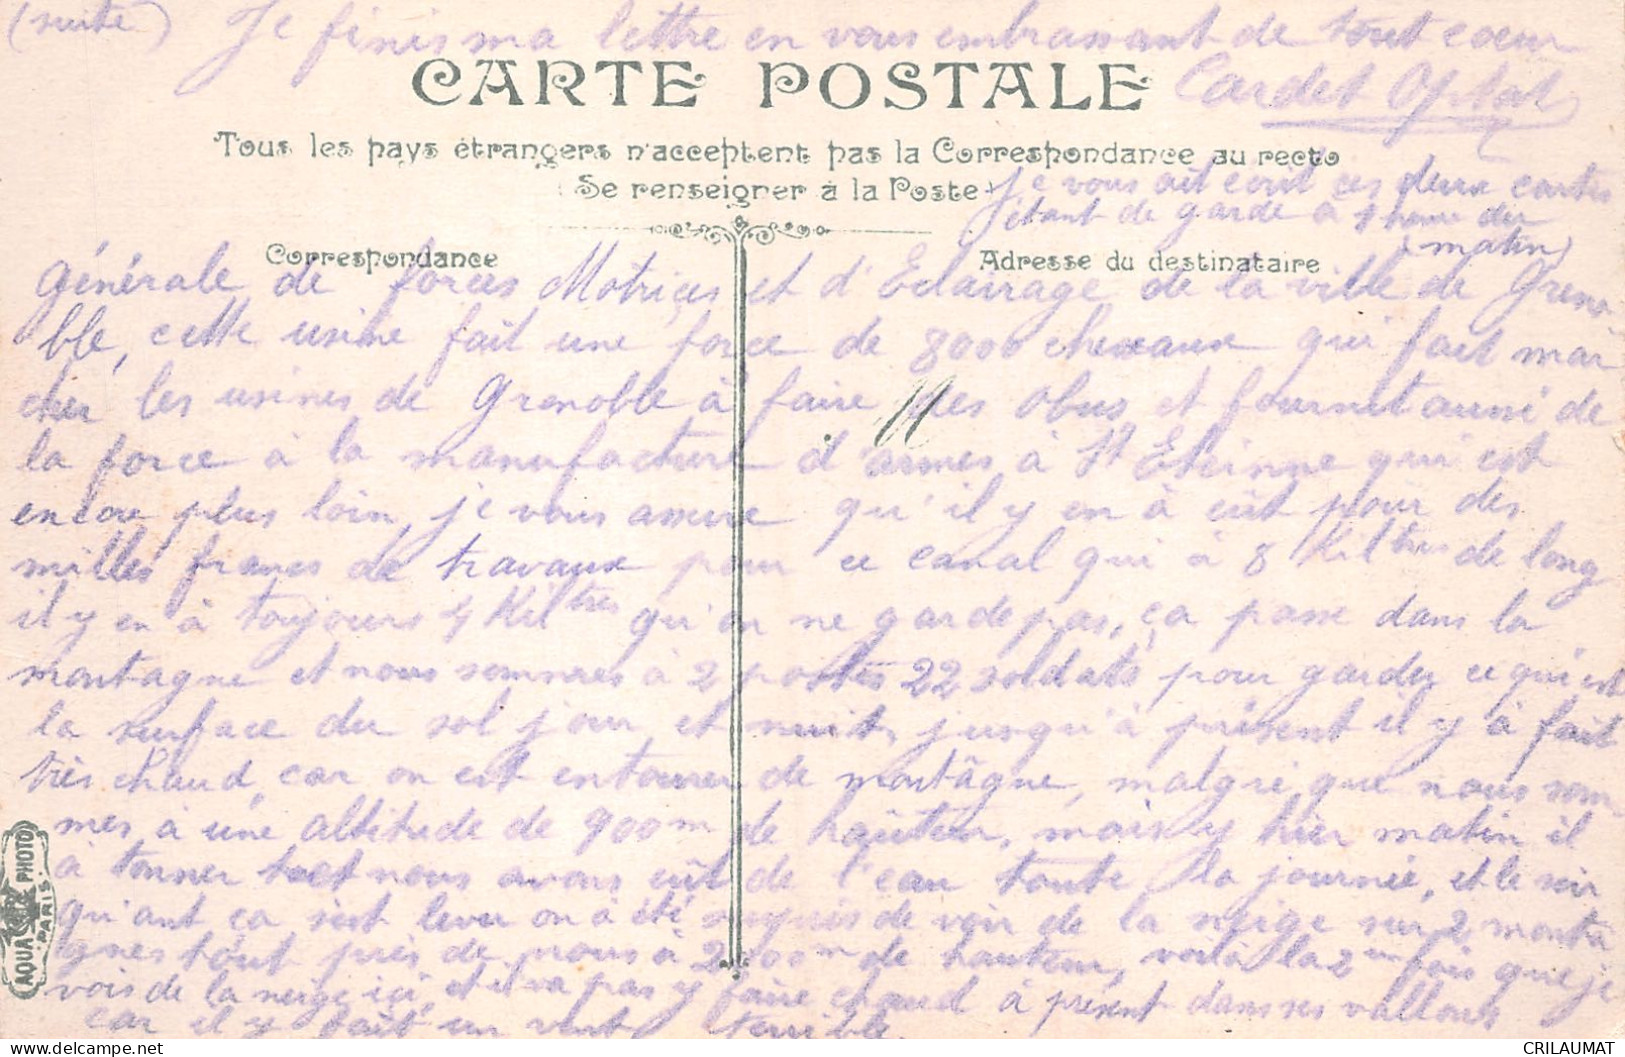 (suite) Je finis ma lettre en vous embrassant de tout coeur
CARTE POSTALE
Cardet Optat
Tous les pays étrangers n'acceptent pas la Correspondance au recto
(Se renseigner à la Poste)
Je vous ait écrit ces deux cartes
étant de garde à 1 heure du
(matin)
Correspondance
Adresse du destinataire
générale de forces Motrices et d'Eclairage de la ville de Greno-
ble, cette usine fait une force de 8000 chevaux qui fait mar
cher les usines de Grenoble à faire des obus et fournit aussi de
la force à la manufacture d'armes à St Eteinne qui est
encore plus loin, je vous assure qu'il y en à eût pour des
milles francs de travaux pour ce canal qui à 8 Kiltres de long
il y en à toujours 4 Kiltres qu'on ne garde pas, ça passe dans la
montagne et nous sommes à 2 postes 22 soldats pour garder ce qu'est
la surface du sol jour et nuit, jusqu'à présent il y à fait
très chaud, car on est entourer de montâgne, malgré que nous som-
mes à une altitude de 900m de haûteur, mais y hier matin il
à tonner et nous avons eût de l'eau toute la journée, et le soir
qu'ant ça s'est lever on à été surpris de voir de la neige sur 2 monta
gnes tout près de nous à 2000m de hauteur, voilà la 2me fois que je
vois de la neige ici, et il va pas y faire chaud à présent dans ses vallons
car il y fait un vent terrible.
AQUA PHOTO
PARIS
CRILAUMAT